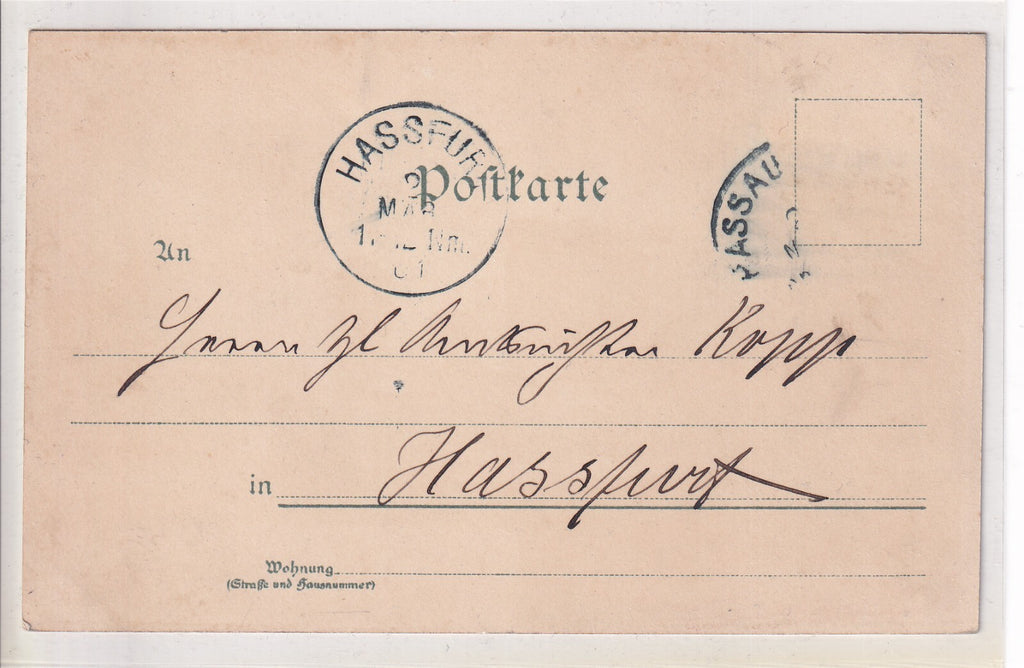 HASSFUR
MAR
Nm.
01
Postkarte
PASSAU
An
Herrn Kgl Amtsrichter Kopp
Hassfurt
in
Wohnung
(Straße und Hausnummer)